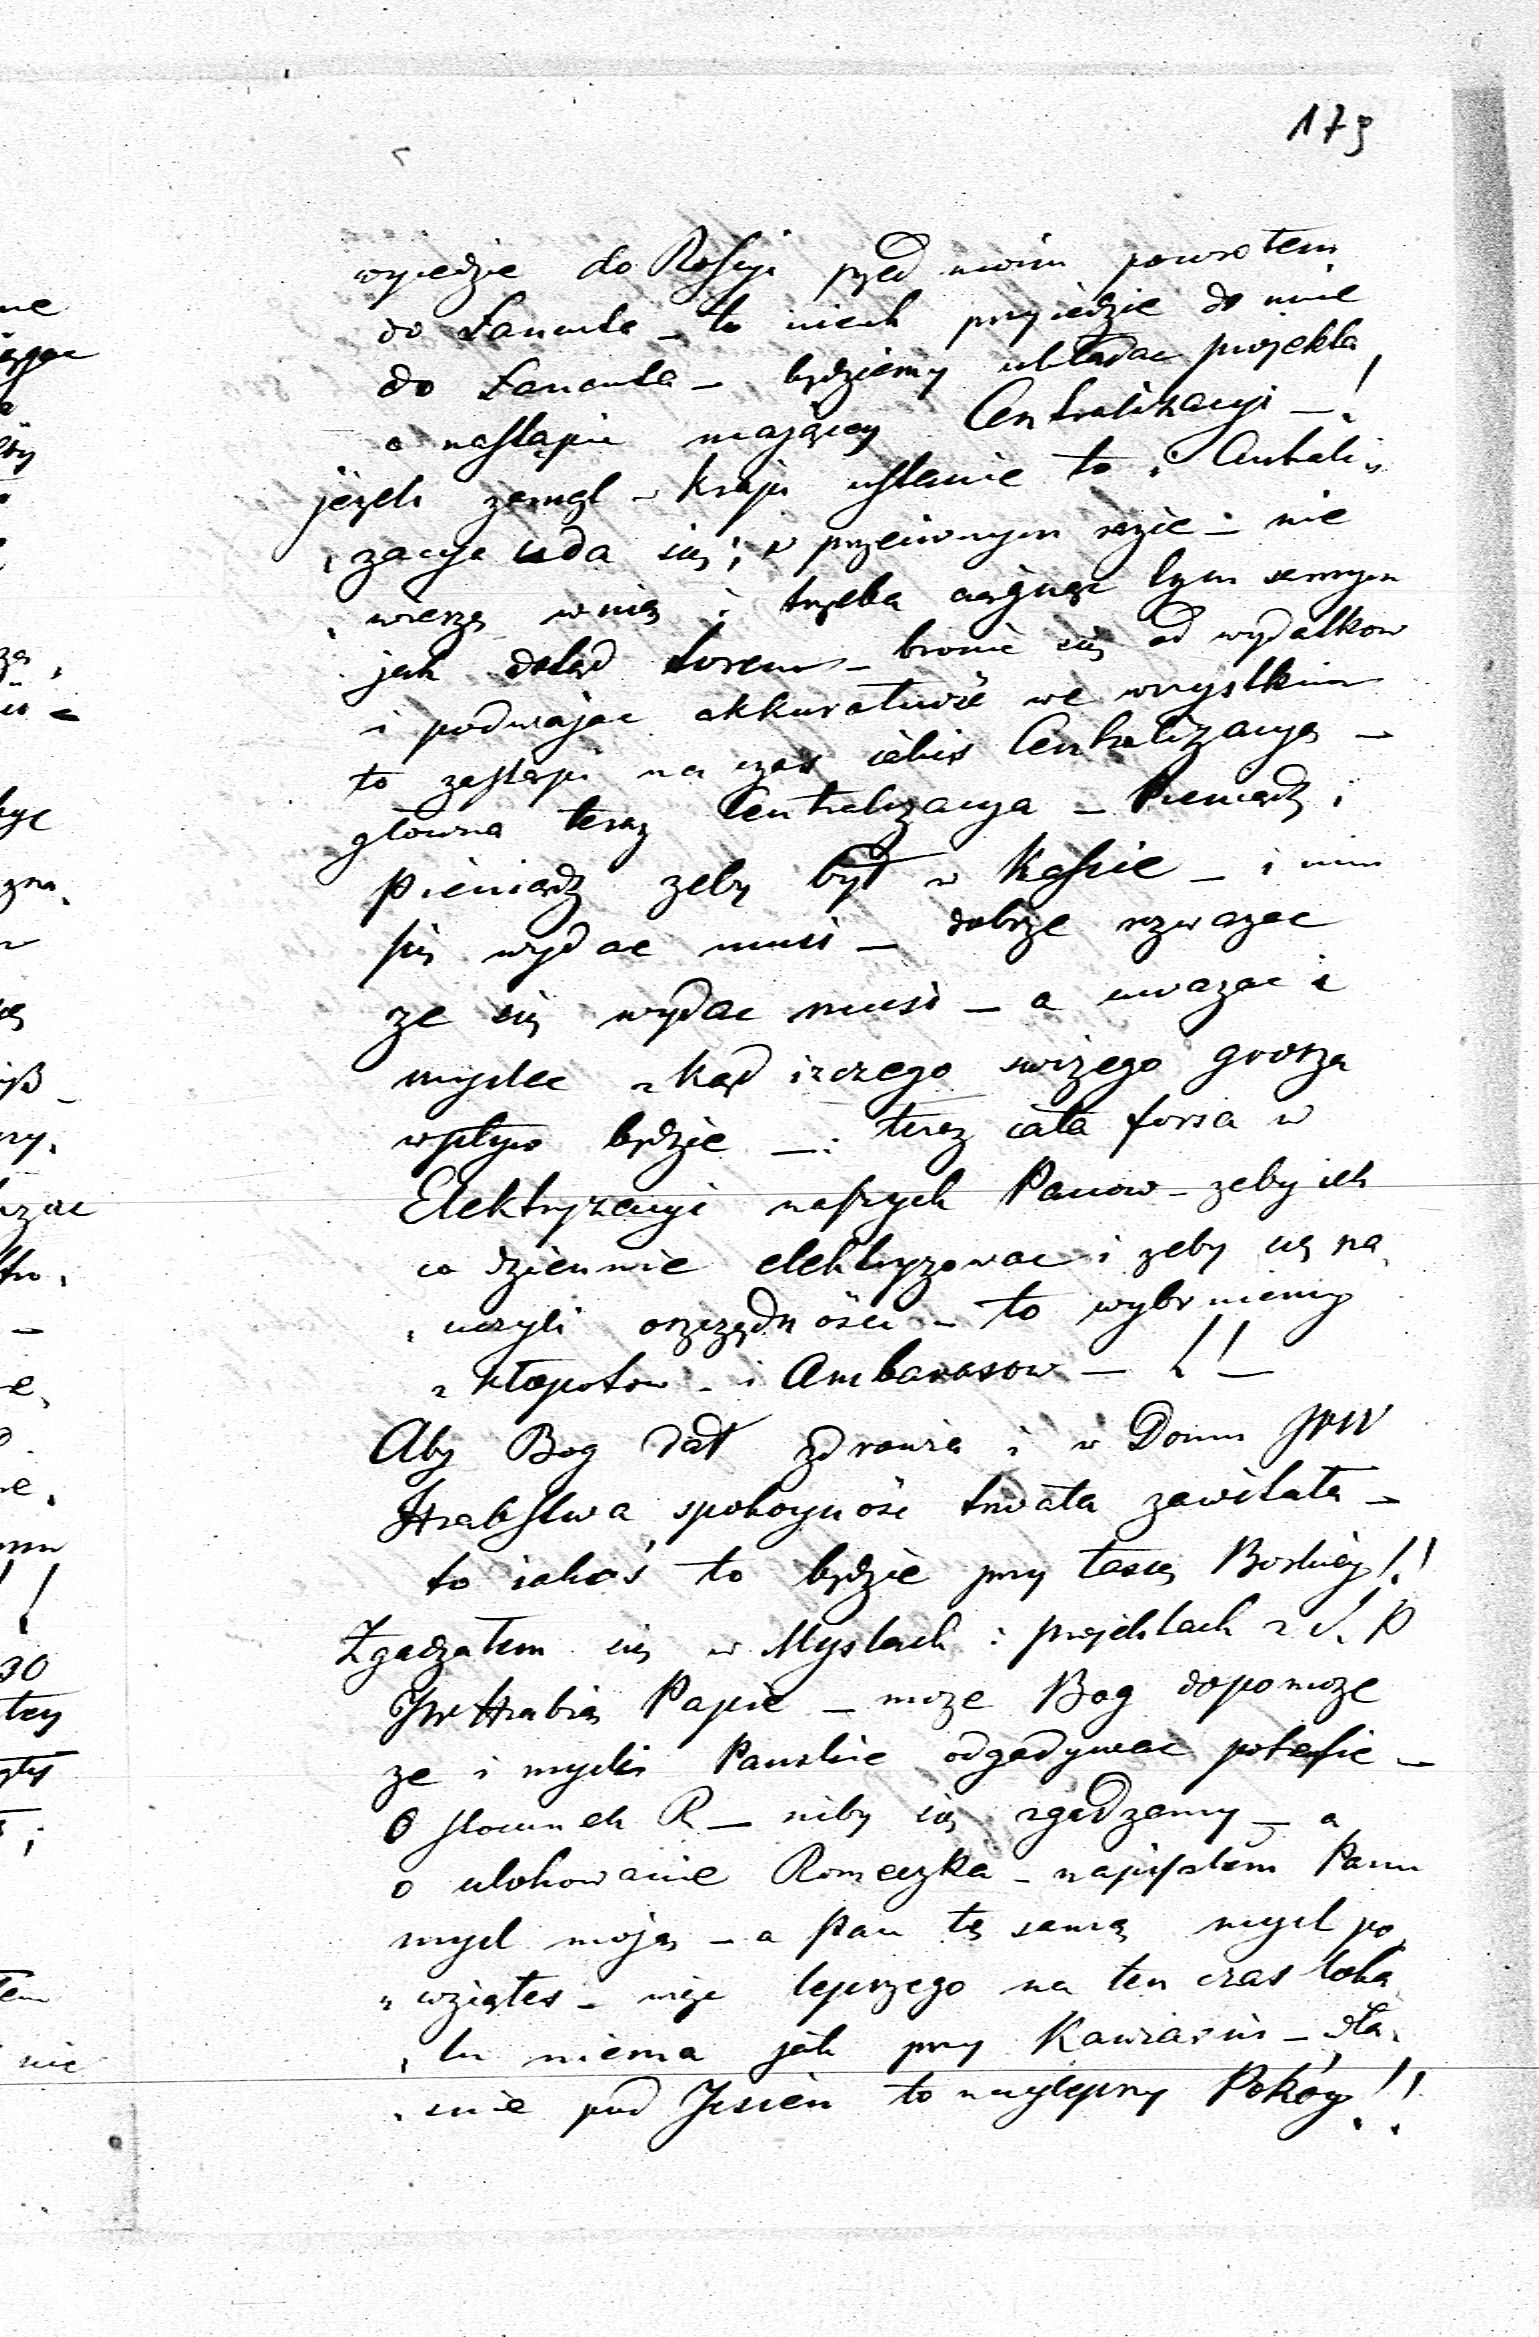 179
wyiedzie do Rossyi przed moim powrotem
do Lancuta – to niech przyiedzie do mnie
do Lancuta – będziemy układac projekta
o nastąpic maiącey Centralizacyi – !
jezeli zamęt w kraju ustanie to i Centrali„
„zacya uda się; w przeciwnym razie – nie
„wierzę w nią i trzeba ciągnąc tym samym
jak dotąd torem – bronic się od wydatkow
i podwajac akkuratność we wszystkim
to zastąpi na czas iakis Centralizacyą –
głowna teraz Centralizacya – Pieniądz i
pieniądz zeby był w Kassie – i nim
się wydac musi – dobrze rozwazac
ze się wydac musi – a uwazac i
myslec zkąd i z czego swiżego grosza
wpływ będzie – : teraz cała forsa w
Elektryzacyi naszych Panow – zeby ich
co dziennie elektryzowac i zeby się na„
„uczyli oszczędności – to wybrniemy
z kłopotow – i Ambarasow – ! ! –
Aby Bog dał zdrowia i w Domu JWW
Hrabstwa spokoyność trwała zawitała –
to iakoś to będzie przy łasce Boskiey!!
Zgadzałem się w Myslach i projektach z S. P
JW Hrabią Papie – moze Bog dopomoze
ze i mysli Panskie odgadywac potrafie –
O stounek R – niby się zgadzamy – a
o ulokowanie Romeczka – napisałem Panu
mysl moją – a Pan tę samą mysl po„
„wziąłes – więc lepszego na ten czas loka„
„lu niema jak przy Kawiarni – wła„
„snie pod Jesien to naylepszy Pokóy!!